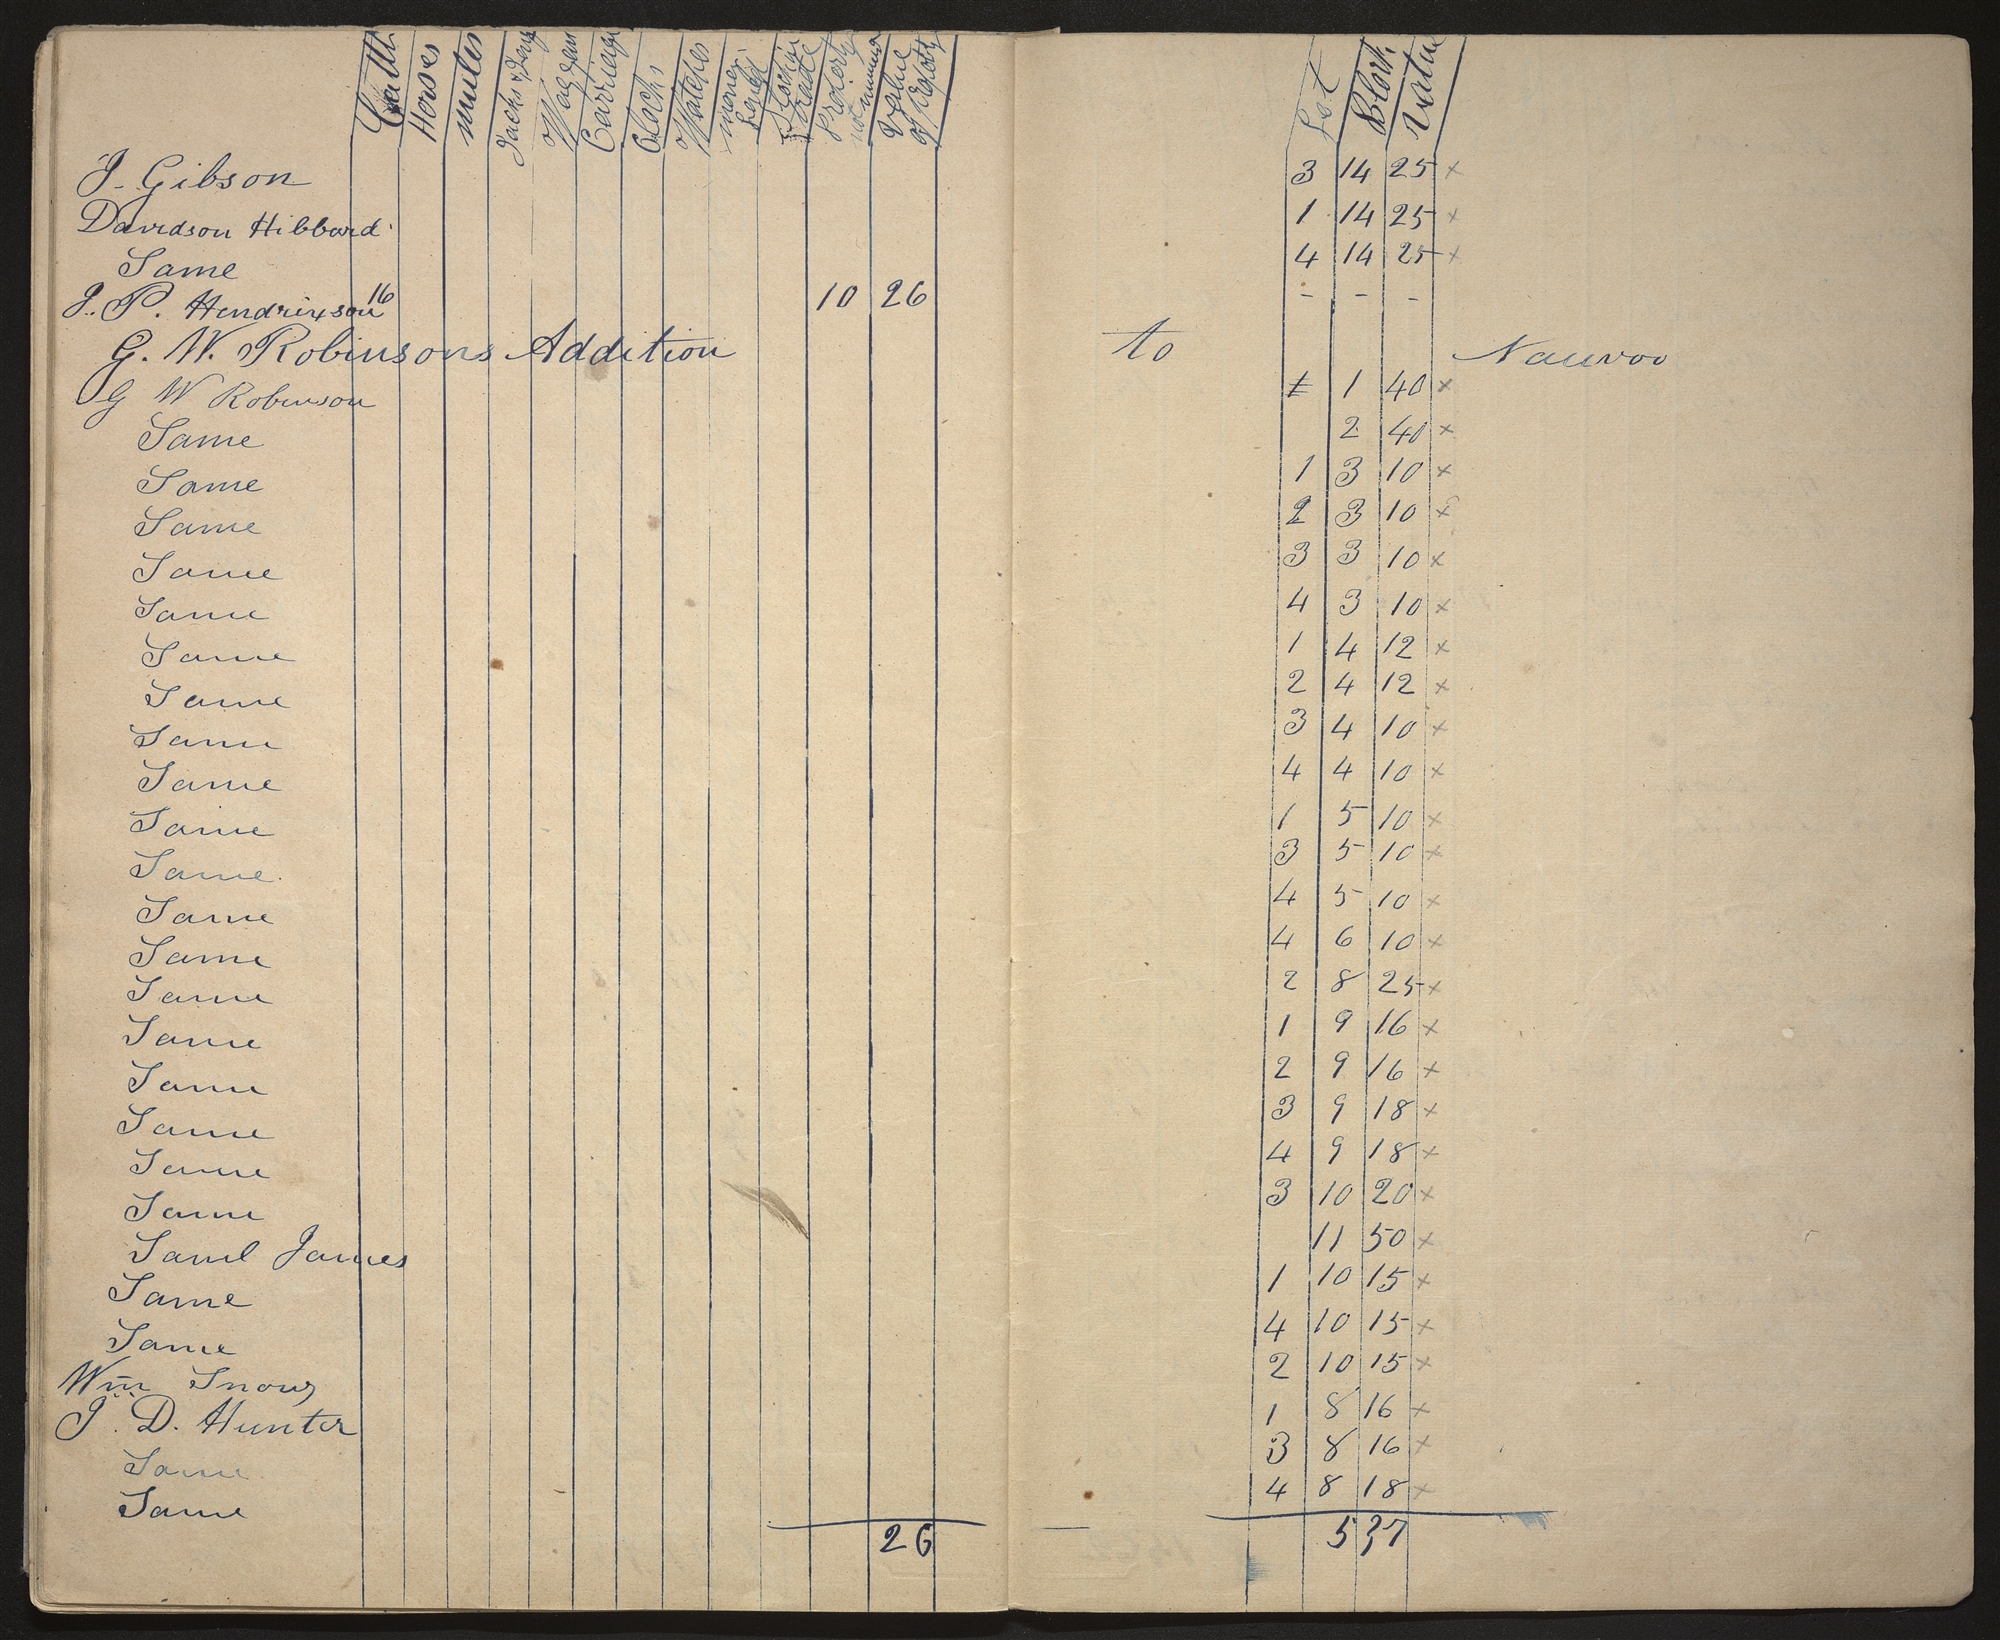 Cattle Horses Mules Jacks & Jenys Waggons Carriages Clocks Watches money Loaned Stock in Trade Property not enumerated Value of Property Lot Block Value
J. Gibson 3 14 25 x
Davidson Hibbard 1 14 25 x
Same 4 14 25 x
J. P. Hendrixson 16 10 26 - - -
G. W. Robinsons Addition to Nauvoo
G W Robinson 1 40 x
Same 2 40 x
Same 1 3 10 x
Same 2 3 10 x
Same 3 3 10 x
Same 4 3 10 x
Same 1 4 12 x
Same 2 4 12 x
Same 3 4 10 x
Same 4 4 10 x
Same 1 5 10 x
Same 3 5 10 x
Same 4 5 10 x
Same 4 6 10 x
Same 2 8 25 x
Same 1 9 16 x
Same 2 9 16 x
Same 3 9 18 x
Same 4 9 18 x
Same 3 10 20 x
Saml James 11 50 x
Same 1 10 15 x
Same 4 10 15 x
Wm Snow 2 10 15 x
J. D. Hunter 1 8 16 x
Same 3 8 16 x
Same 4 8 18 x
26 537